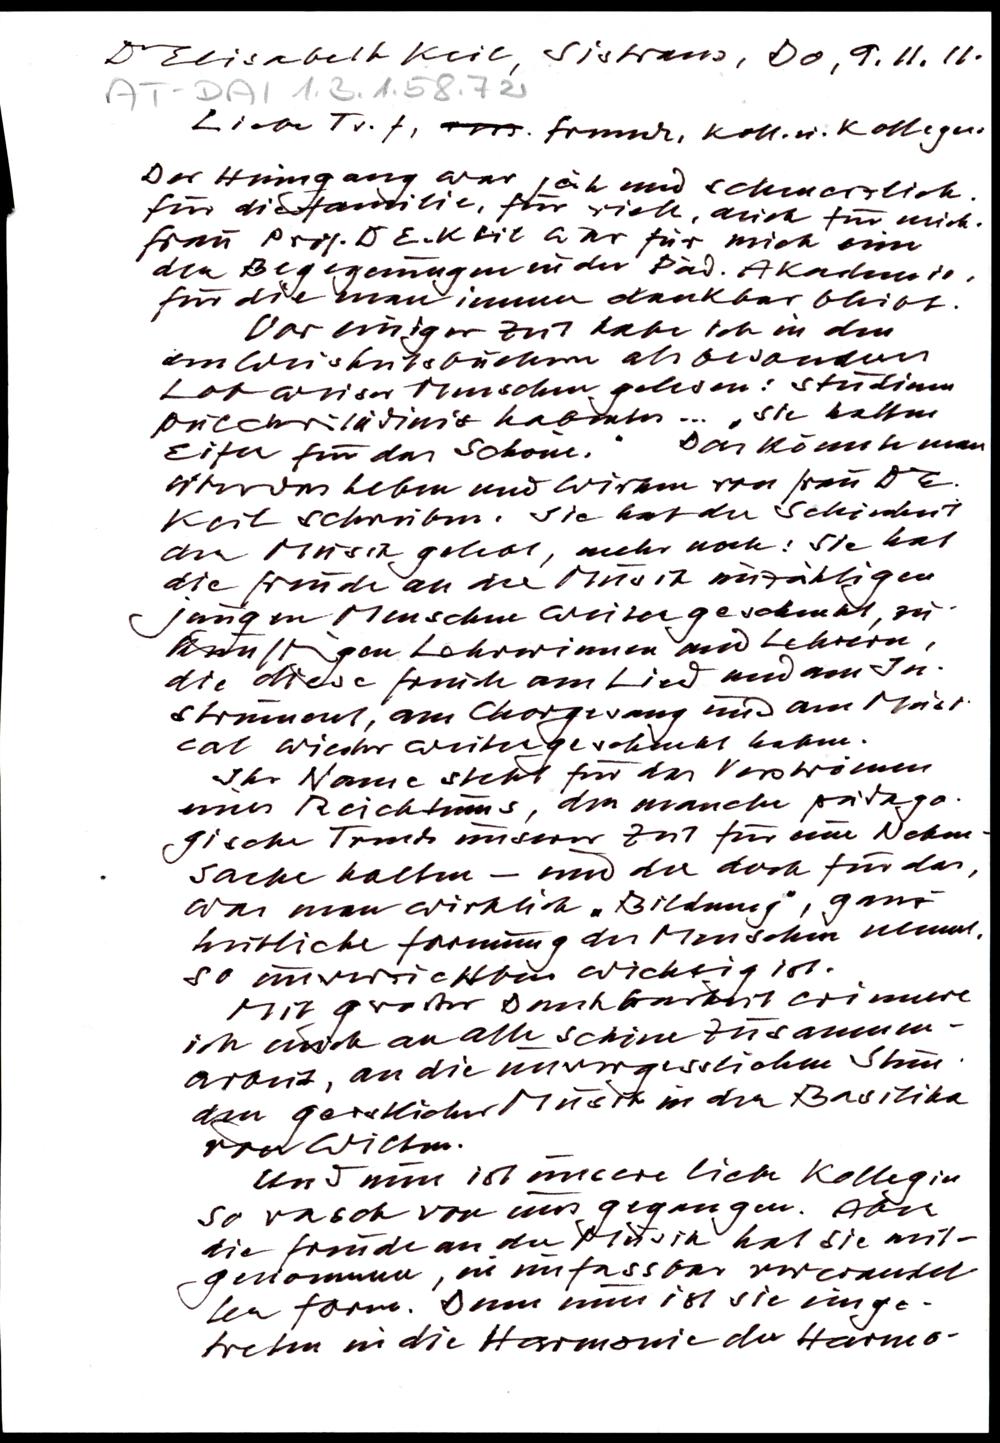 Dr Elisabeth Keil, Sistrans, Do, 9. 11. 11.
AT-DAI 1.3.1.58.72
Liebe Tr. f, Freunde, Koll. u. Kollegen.
Der Heimgang war jäh und schmerzlich.
für die Familie, für viele, auch für mich.
Frau Prof. D E. Keil war für mich eine
der Begegnungen in der Päd. Akademie,
für die man immer dankbar bleibt.
Vor einiger Zeit habe ich in den
Weisheitsbüchern als besonderes
Lob weiser Menschen gelesen: studium
pulchritudinis habentes ... „Sie hatten
Eifer für das Schöne." Das könnte man
über das Leben und Wirken von Frau D E.
Keil schreiben. Sie hat die Schönheit
der Musik gelebt, mehr noch: Sie hat
die Freude an der Musik unzähligen
jungen Menschen weitergeschenkt, zu-
künftigen Lehrerinnen und Lehrern,
die diese Freude am Lied und am In-
strument, am Chorgesang und am Musi-
cal wieder weitergeschenkt haben.
Ihr Name steht für das Verströmen
eines Reichtums, den manche pädago-
gische Trends unserer Zeit für eine Neben-
sache halten – und der doch für das,
was man wirklich „Bildung", ganz-
heitliche Formung des Menschen nennt,
so unverzichtbar wichtig ist.
Mit großer Dankbarkeit erinnere
ich mich an alle schöne Zusammen-
arbeit, an die unvergesslichen Stun-
den geistlicher Musik in der Basilika
von Wilten.
Und nun ist unsere liebe Kollegin
so rasch von uns gegangen. Aber
die Freude an der Musik hat sie mit-
genommen, in unfassbar verwandel-
ter Form. Denn nun ist sie einge-
treten in die Harmonie der Harmo-